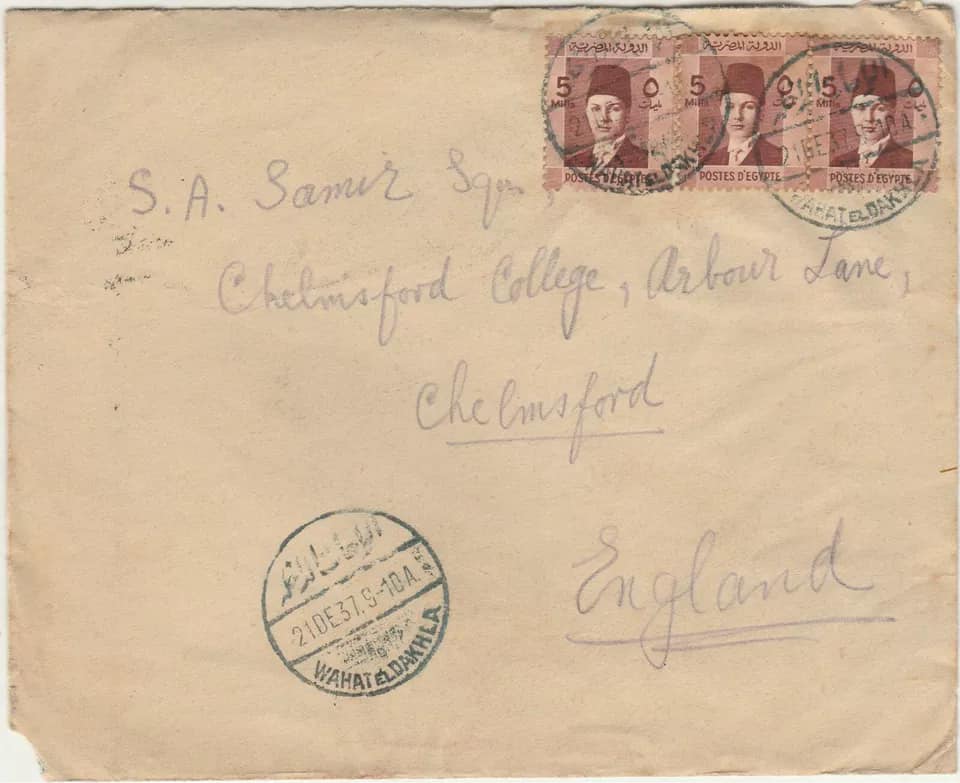 الدولة المصرية الدولة المصرية الدولة المصرية
5 ٥ 5 ٥ 5 ٥
Mills مليمات Mills مليمات Mills مليمات
POSTES D'EGYPTE POSTES D'EGYPTE POSTES D'EGYPTE
WAHAT EL DAKHLA
21 DE 37. 9-10 A
WAHAT EL DAKHLA
S. A. Samir Sqr,
Chelmsford College, Arbour Lane,
Chelmsford
England
الواحات الداخلة
21 DE 37. 9-10 A
WAHAT EL DAKHLA